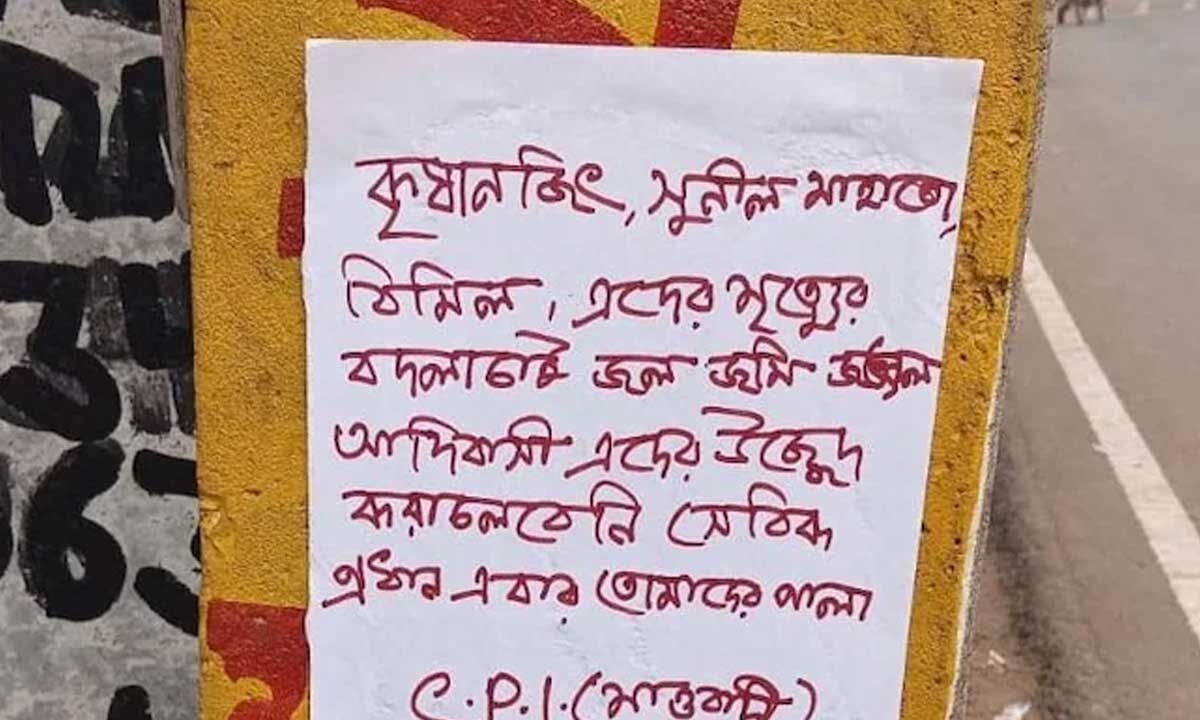 কৃষানজিৎ, সুনীল মাহাতো,
বিমিল, এদের মৃত্যুের
বদলাচাই জল জমি জঙ্গল
আদিবাসী এদের উচ্ছেদ
করাচলবেনি সেবিক
প্রধান এবার তোমাদের পালা
C.P.I. (মাওবাদী)